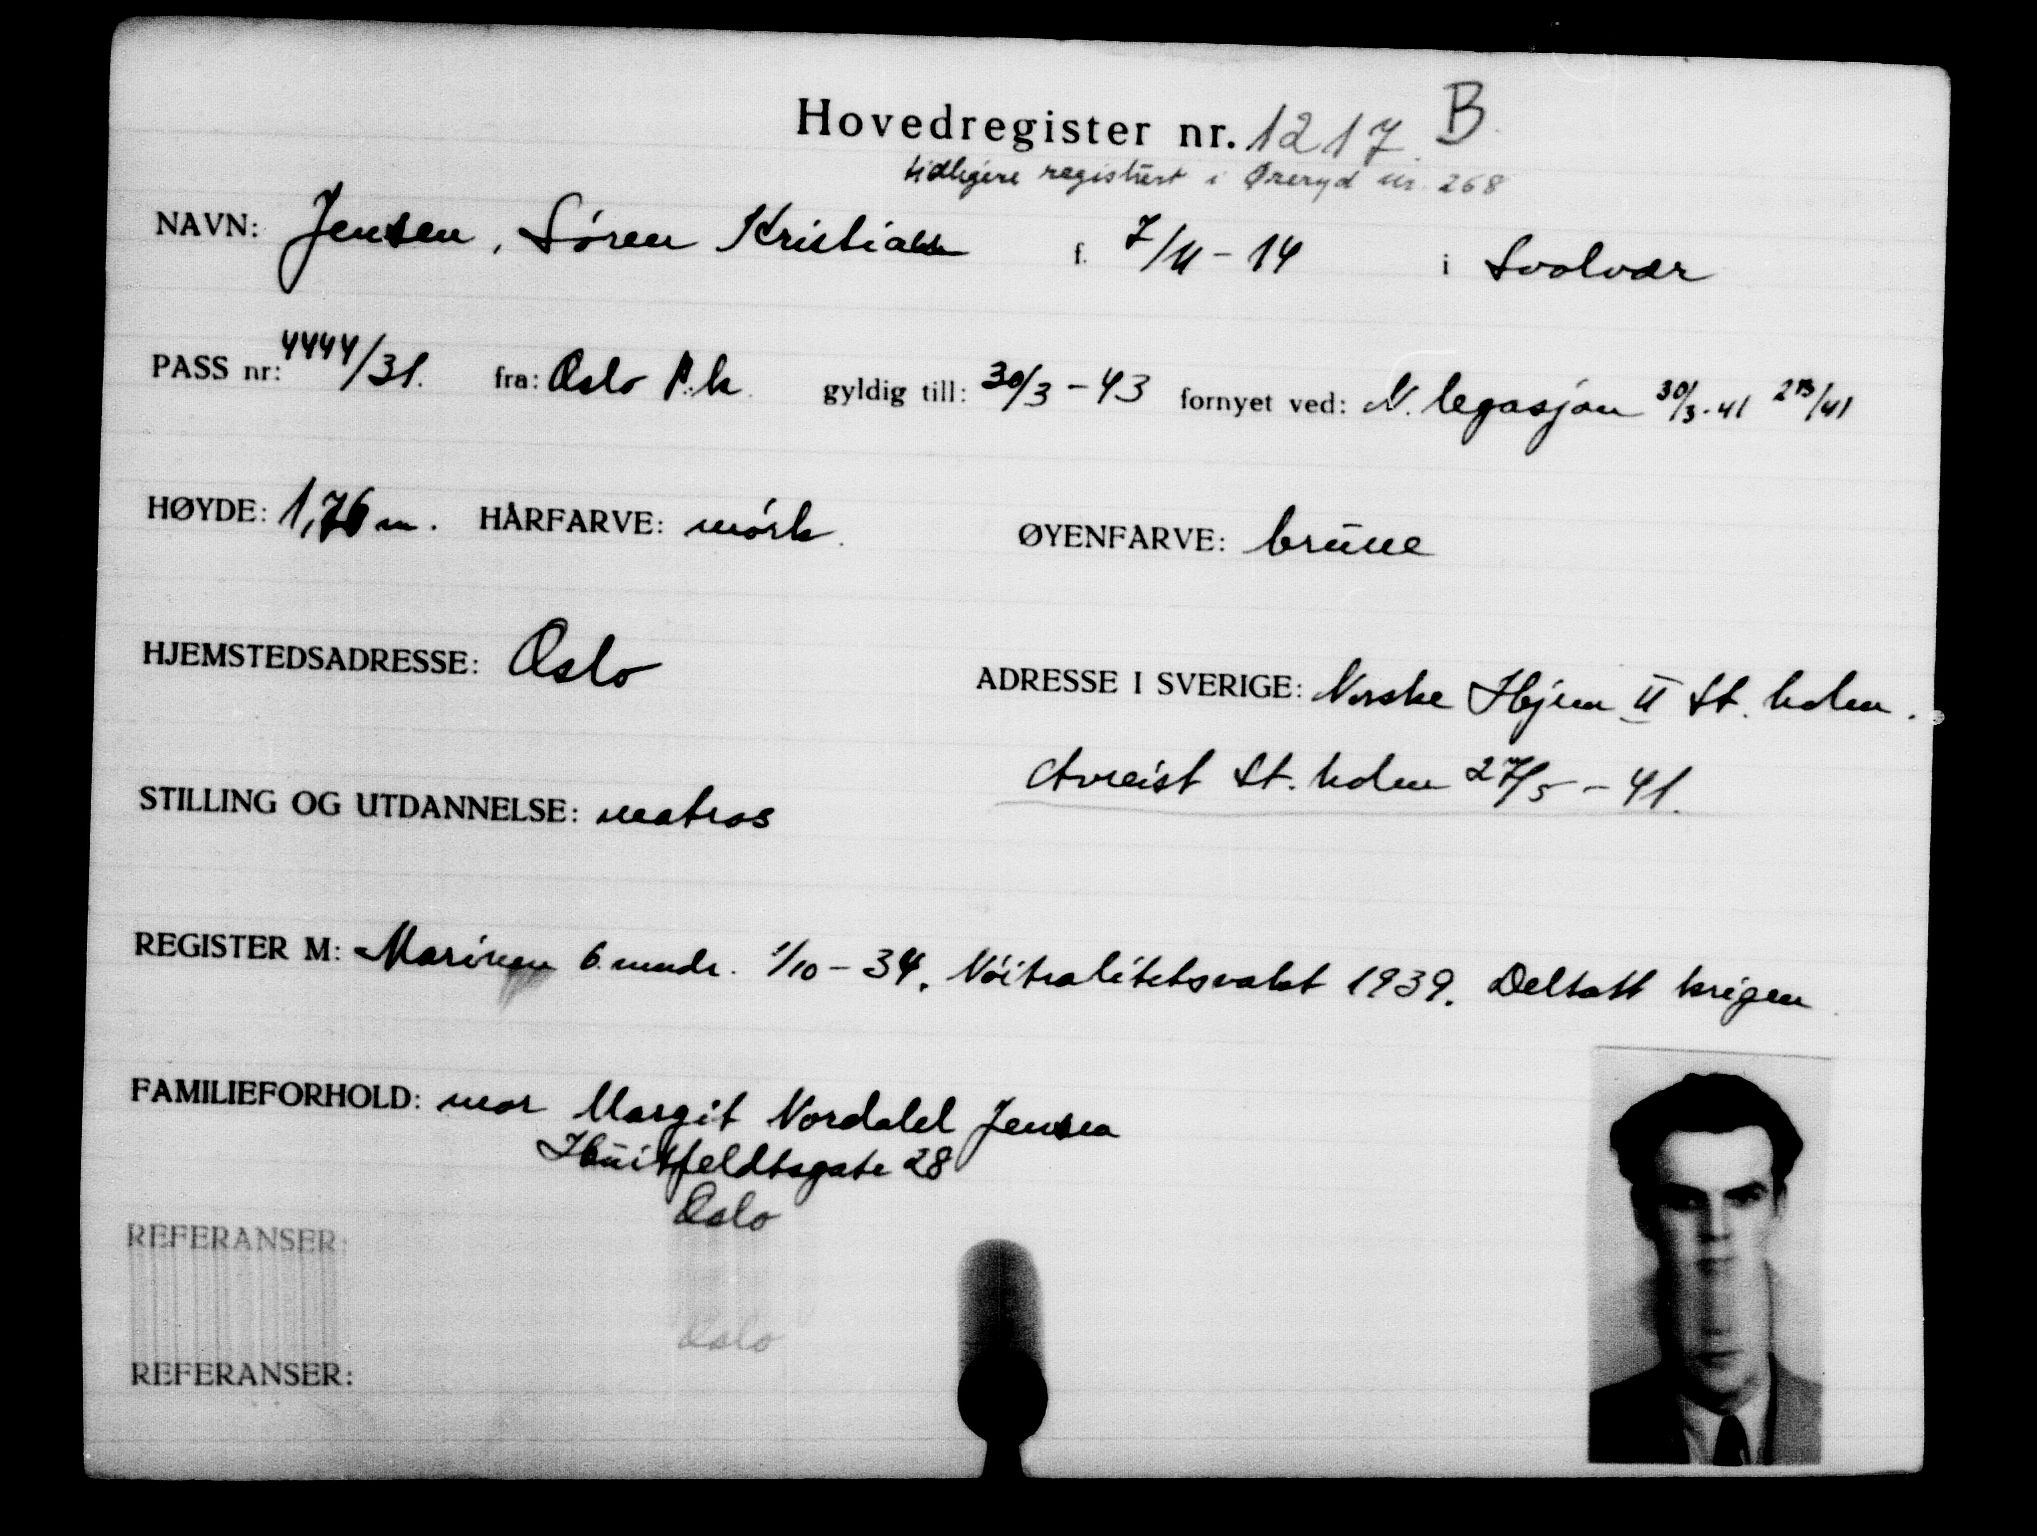 Hovedregister nr. 1217 B
tidligere registrert i Øreryd nr. 268
NAVN: Jensen, Sóren Kristian f. 7/11-14 i Svolvær
PASS nr: 4444/31. fra: Oslo P.k. gyldig till: 30/3-43 fornyet ved: N. legasjon 30/3-41
HØYDE: 1,76 m. HÅRFARVE: mórk. ØYENFARVE: brune
HJEMSTEDSADRESSE: Oslo ADRESSE I SVERIGE: Norske Hjem II St. holm.
Avreist St. holm 27/5-41.
STILLING OG UTDANNELSE: matros
REGISTER M: Marinen 6. mndr. 1/10-34. Nóitralitetsvakt 1939. Deltatt krigen
FAMILIEFORHOLD: mor Margit Nordahl Jensen
Huitfeldtsgate 28
Oslo
REFERANSER:
Oslo
REFERANSER: